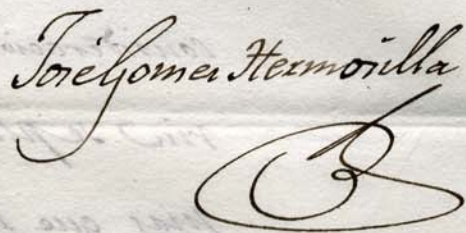 José Gomez Hermosilla